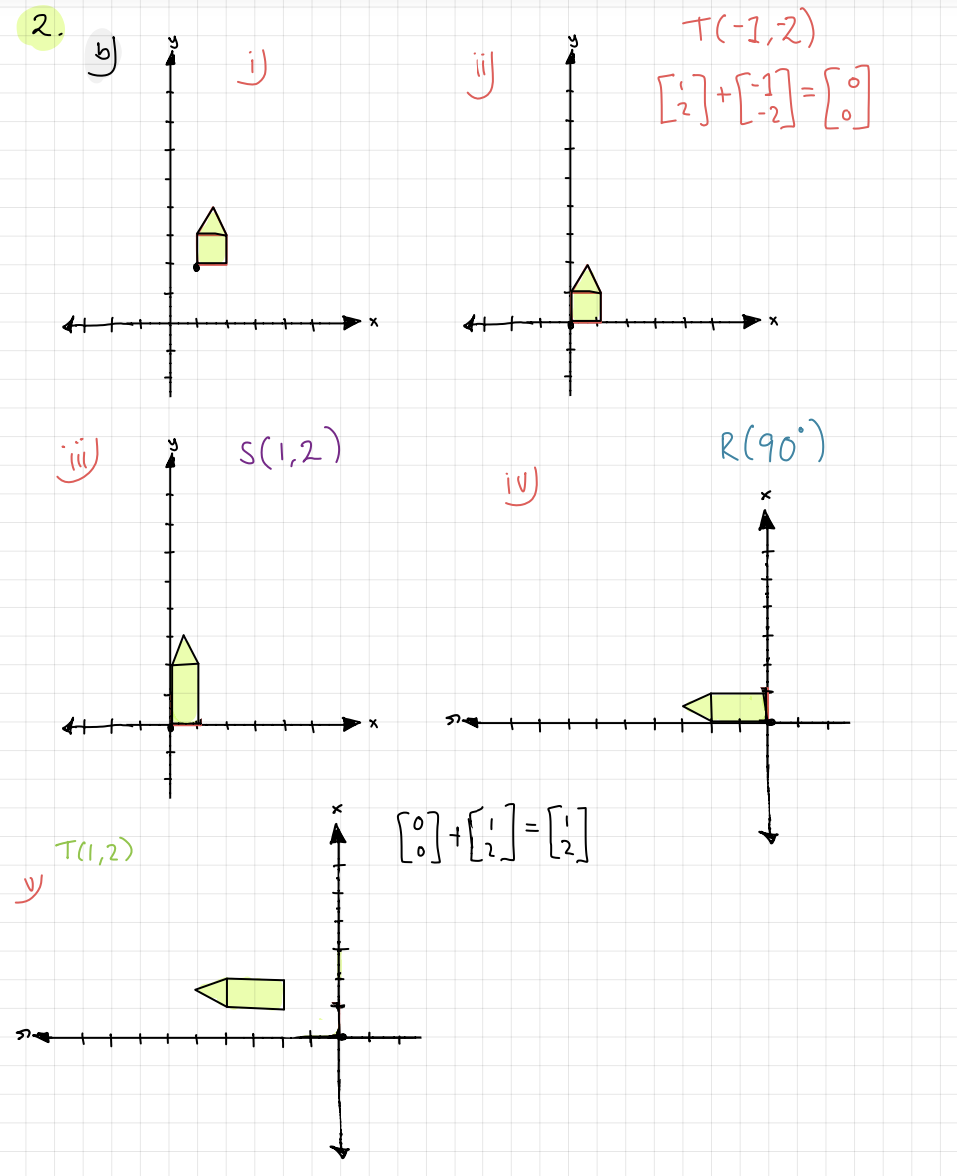 2.
b)
i)
y
x
ii)
y
x
T(-1,-2)
[1 2] + [-1 -2] = [0 0]
iii)
y
x
S(1,2)
iv)
R(90°)
x
y
v)
T(1,2)
x
y
[0 0] + [1 2] = [1 2]